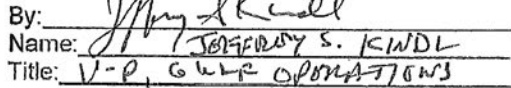 By: Jeffrey S Kindl
Name: JEFFREY S. KINDL
Title: V-P, GULF OPERATIONS